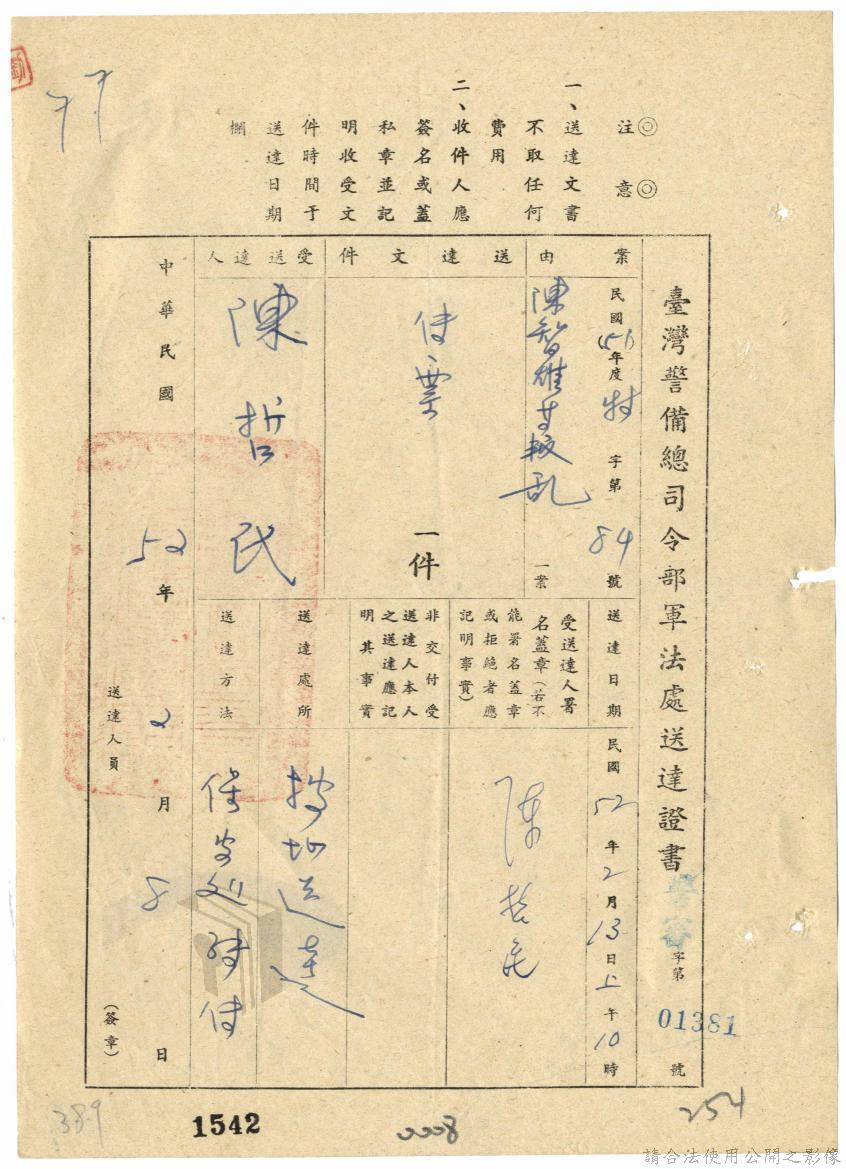 77
◎注意◎
一、送達文書
不取任何
費用
二、收件人應
簽名或蓋
私章並記
明收受文
件時間于
送達日期
欄
臺灣警備總司令部軍法處送達證書
警審字第01381號
案由
民國(51)年度特字第84號
陳智雄等叛乱一案
送達文件
傳票一件
受送達人
陳哲民
送達日期
民國52年2月13日上午10時
受送達人署
名蓋章(若不
能署名蓋章
或拒絕者應
記明事實)
陳哲民
非交付受
送達人本人
之送達應記
明其事實
送達處所
按址送達
送達方法
保安处轉付
中華民國52年2月8日
送達人員
(簽章)
389
1542
0008
254
請合法使用公開之影像